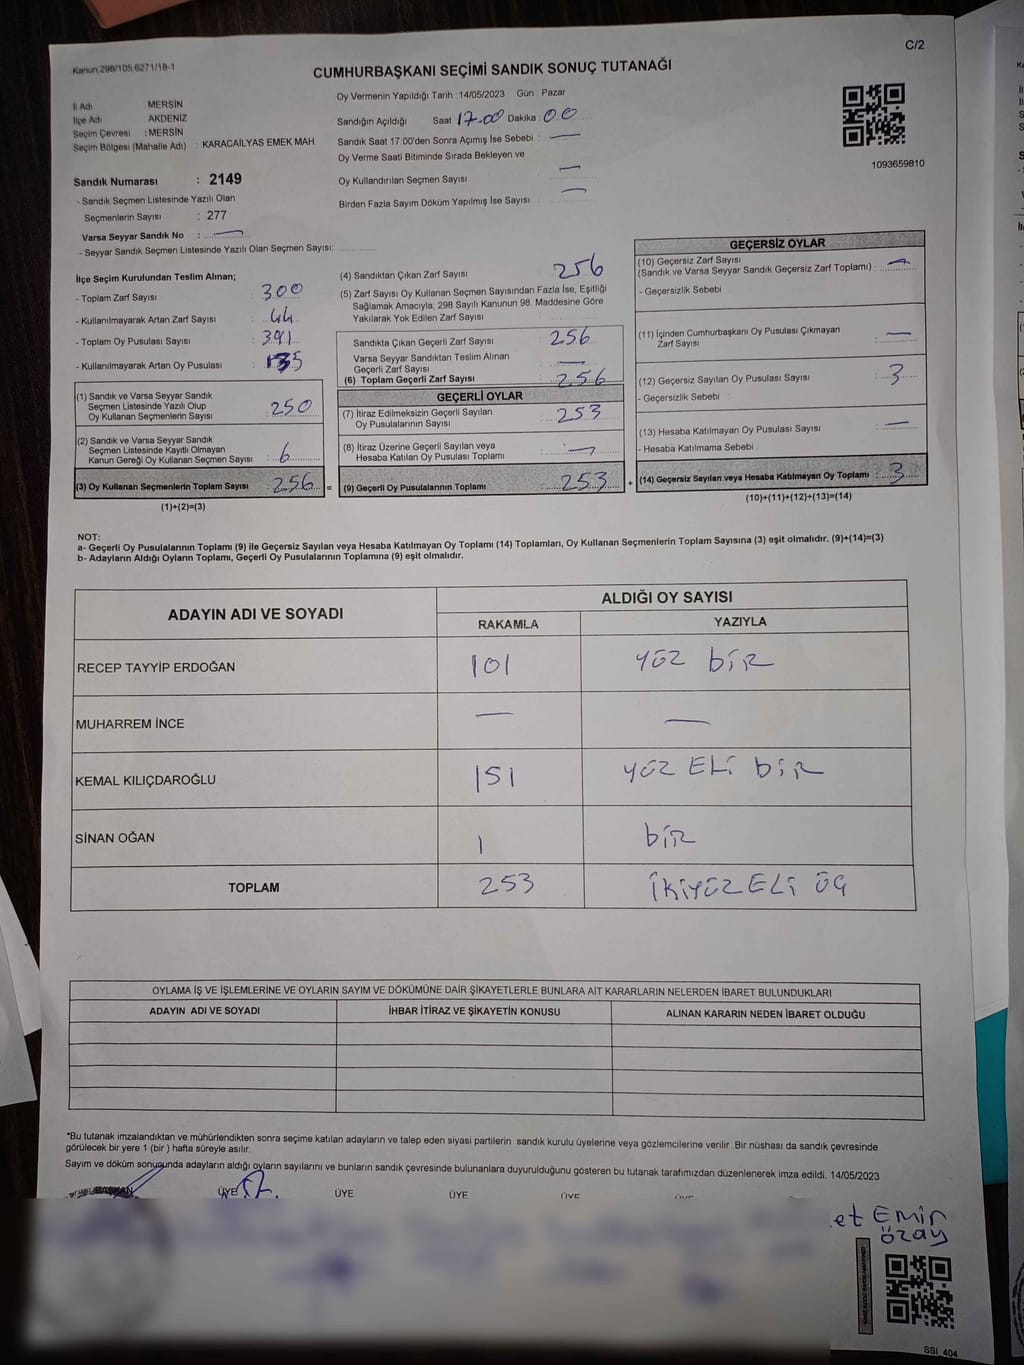 Kanun.298/105,6271/18-1
C/2
CUMHURBAŞKANI SEÇİMİ SANDIK SONUÇ TUTANAĞI
İl Adı MERSİN
İlçe Adı AKDENİZ
Seçim Çevresi : MERSİN
Seçim Bölgesi (Mahalle Adı) : KARACAİLYAS EMEK MAH.
Sandık Numarası : 2149
- Sandık Seçmen Listesinde Yazılı Olan
Seçmenlerin Sayısı : 277
Varsa Seyyar Sandık No : —
- Seyyar Sandık Seçmen Listesinde Yazılı Olan Seçmen Sayısı:
Oy Vermenin Yapıldığı Tarih : 14/05/2023 Gün : Pazar
Sandığın Açıldığı Saat 17.00 Dakika : 00
Sandık Saat 17:00'den Sonra Açımış İse Sebebi : —
Oy Verme Saati Bitiminde Sırada Bekleyen ve
Oy Kullandırılan Seçmen Sayısı —
Birden Fazla Sayım Döküm Yapılmış İse Sayısı : —
1093659810
İlçe Seçim Kurulundan Teslim Alınan;
- Toplam Zarf Sayısı : 300
- Kullanılmayarak Artan Zarf Sayısı : 44
- Toplam Oy Pusulası Sayısı : 391
- Kullanılmayarak Artan Oy Pusulası : 135
(1) Sandık ve Varsa Seyyar Sandık
Seçmen Listesinde Yazılı Olup
Oy Kullanan Seçmenlerin Sayısı : 250
(2) Sandık ve Varsa Seyyar Sandık
Seçmen Listesinde Kayıtlı Olmayan
Kanun Gereği Oy Kullanan Seçmen Sayısı : 6
(3) Oy Kullanan Seçmenlerin Toplam Sayısı : 256 =
(1)+(2)=(3)
(4) Sandıktan Çıkan Zarf Sayısı 256
(5) Zarf Sayısı Oy Kullanan Seçmen Sayısından Fazla İse, Eşitliği
Sağlamak Amacıyla; 298 Sayılı Kanunun 98. Maddesine Göre
Yakılarak Yok Edilen Zarf Sayısı :
Sandıkta Çıkan Geçerli Zarf Sayısı : 256
Varsa Seyyar Sandıktan Teslim Alınan
Geçerli Zarf Sayısı : —
(6) Toplam Geçerli Zarf Sayısı : 256
GEÇERLİ OYLAR
(7) İtiraz Edilmeksizin Geçerli Sayılan
Oy Pusulasının Sayısı : 253
(8) İtiraz Üzerine Geçerli Sayılan veya
Hesaba Katılan Oy Pusulası Toplamı : —
(9) Geçerli Oy Pusulalarının Toplamı : 253 +
GEÇERSİZ OYLAR
(10) Geçersiz Zarf Sayısı
(Sandık ve Varsa Seyyar Sandık Geçersiz Zarf Toplamı) : —
- Geçersizlik Sebebi :
(11) İçinden Cumhurbaşkanı Oy Pusulası Çıkmayan
Zarf Sayısı : —
(12) Geçersiz Sayılan Oy Pusulası Sayısı : 3
- Geçersizlik Sebebi :
(13) Hesaba Katılmayan Oy Pusulası Sayısı : —
- Hesaba Katılmama Sebebi :
(14) Geçersiz Sayılan veya Hesaba Katılmayan Oy Toplamı : 3
(10)+(11)+(12)+(13)=(14)
NOT:
a- Geçerli Oy Pusulalarının Toplamı (9) ile Geçersiz Sayılan veya Hesaba Katılmayan Oy Toplamı (14) Toplamları, Oy Kullanan Seçmenlerin Toplam Sayısına (3) eşit olmalıdır. (9)+(14)=(3)
b- Adayların Aldığı Oyların Toplamı, Geçerli Oy Pusulalarının Toplamına (9) eşit olmalıdır.
ADAYIN ADI VE SOYADI
ALDIĞI OY SAYISI
RAKAMLA YAZIYLA
RECEP TAYYİP ERDOĞAN 101 YÜZ BİR
MUHARREM İNCE — —
KEMAL KILIÇDAROĞLU 151 YÜZ ELİ BİR
SİNAN OĞAN 1 BİR
TOPLAM 253 İKİYÜZ ELİ ÜÇ
OYLAMA İŞ VE İŞLEMLERİNE VE OYLARIN SAYIM VE DÖKÜMÜNE DAİR ŞİKAYETLERLE BUNLARA AİT KARARLARIN NELERDEN İBARET BULUNDUKLARI
ADAYIN ADI VE SOYADI İHBAR İTİRAZ VE ŞİKAYETİN KONUSU ALINAN KARARIN NEDEN İBARET OLDUĞU
*Bu tutanak imzalandıktan ve mühürlendikten sonra seçime katılan adayların ve talep eden siyasi partilerin sandık kurulu üyelerine veya gözlemcilerine verilir. Bir nüshası da sandık çevresinde
görülecek bir yere 1 (bir ) hafta süreyle asılır.
Sayım ve döküm sonucunda adayların aldığı oyların sayılarını ve bunların sandık çevresinde bulunanlara duyurulduğunu gösteren bu tutanak tarafımızdan düzenlenerek imza edildi. 14/05/2023
BAŞKAN ÜYE ÜYE ÜYE ÜYE ÜYE
et Emin
özay
SSI_404